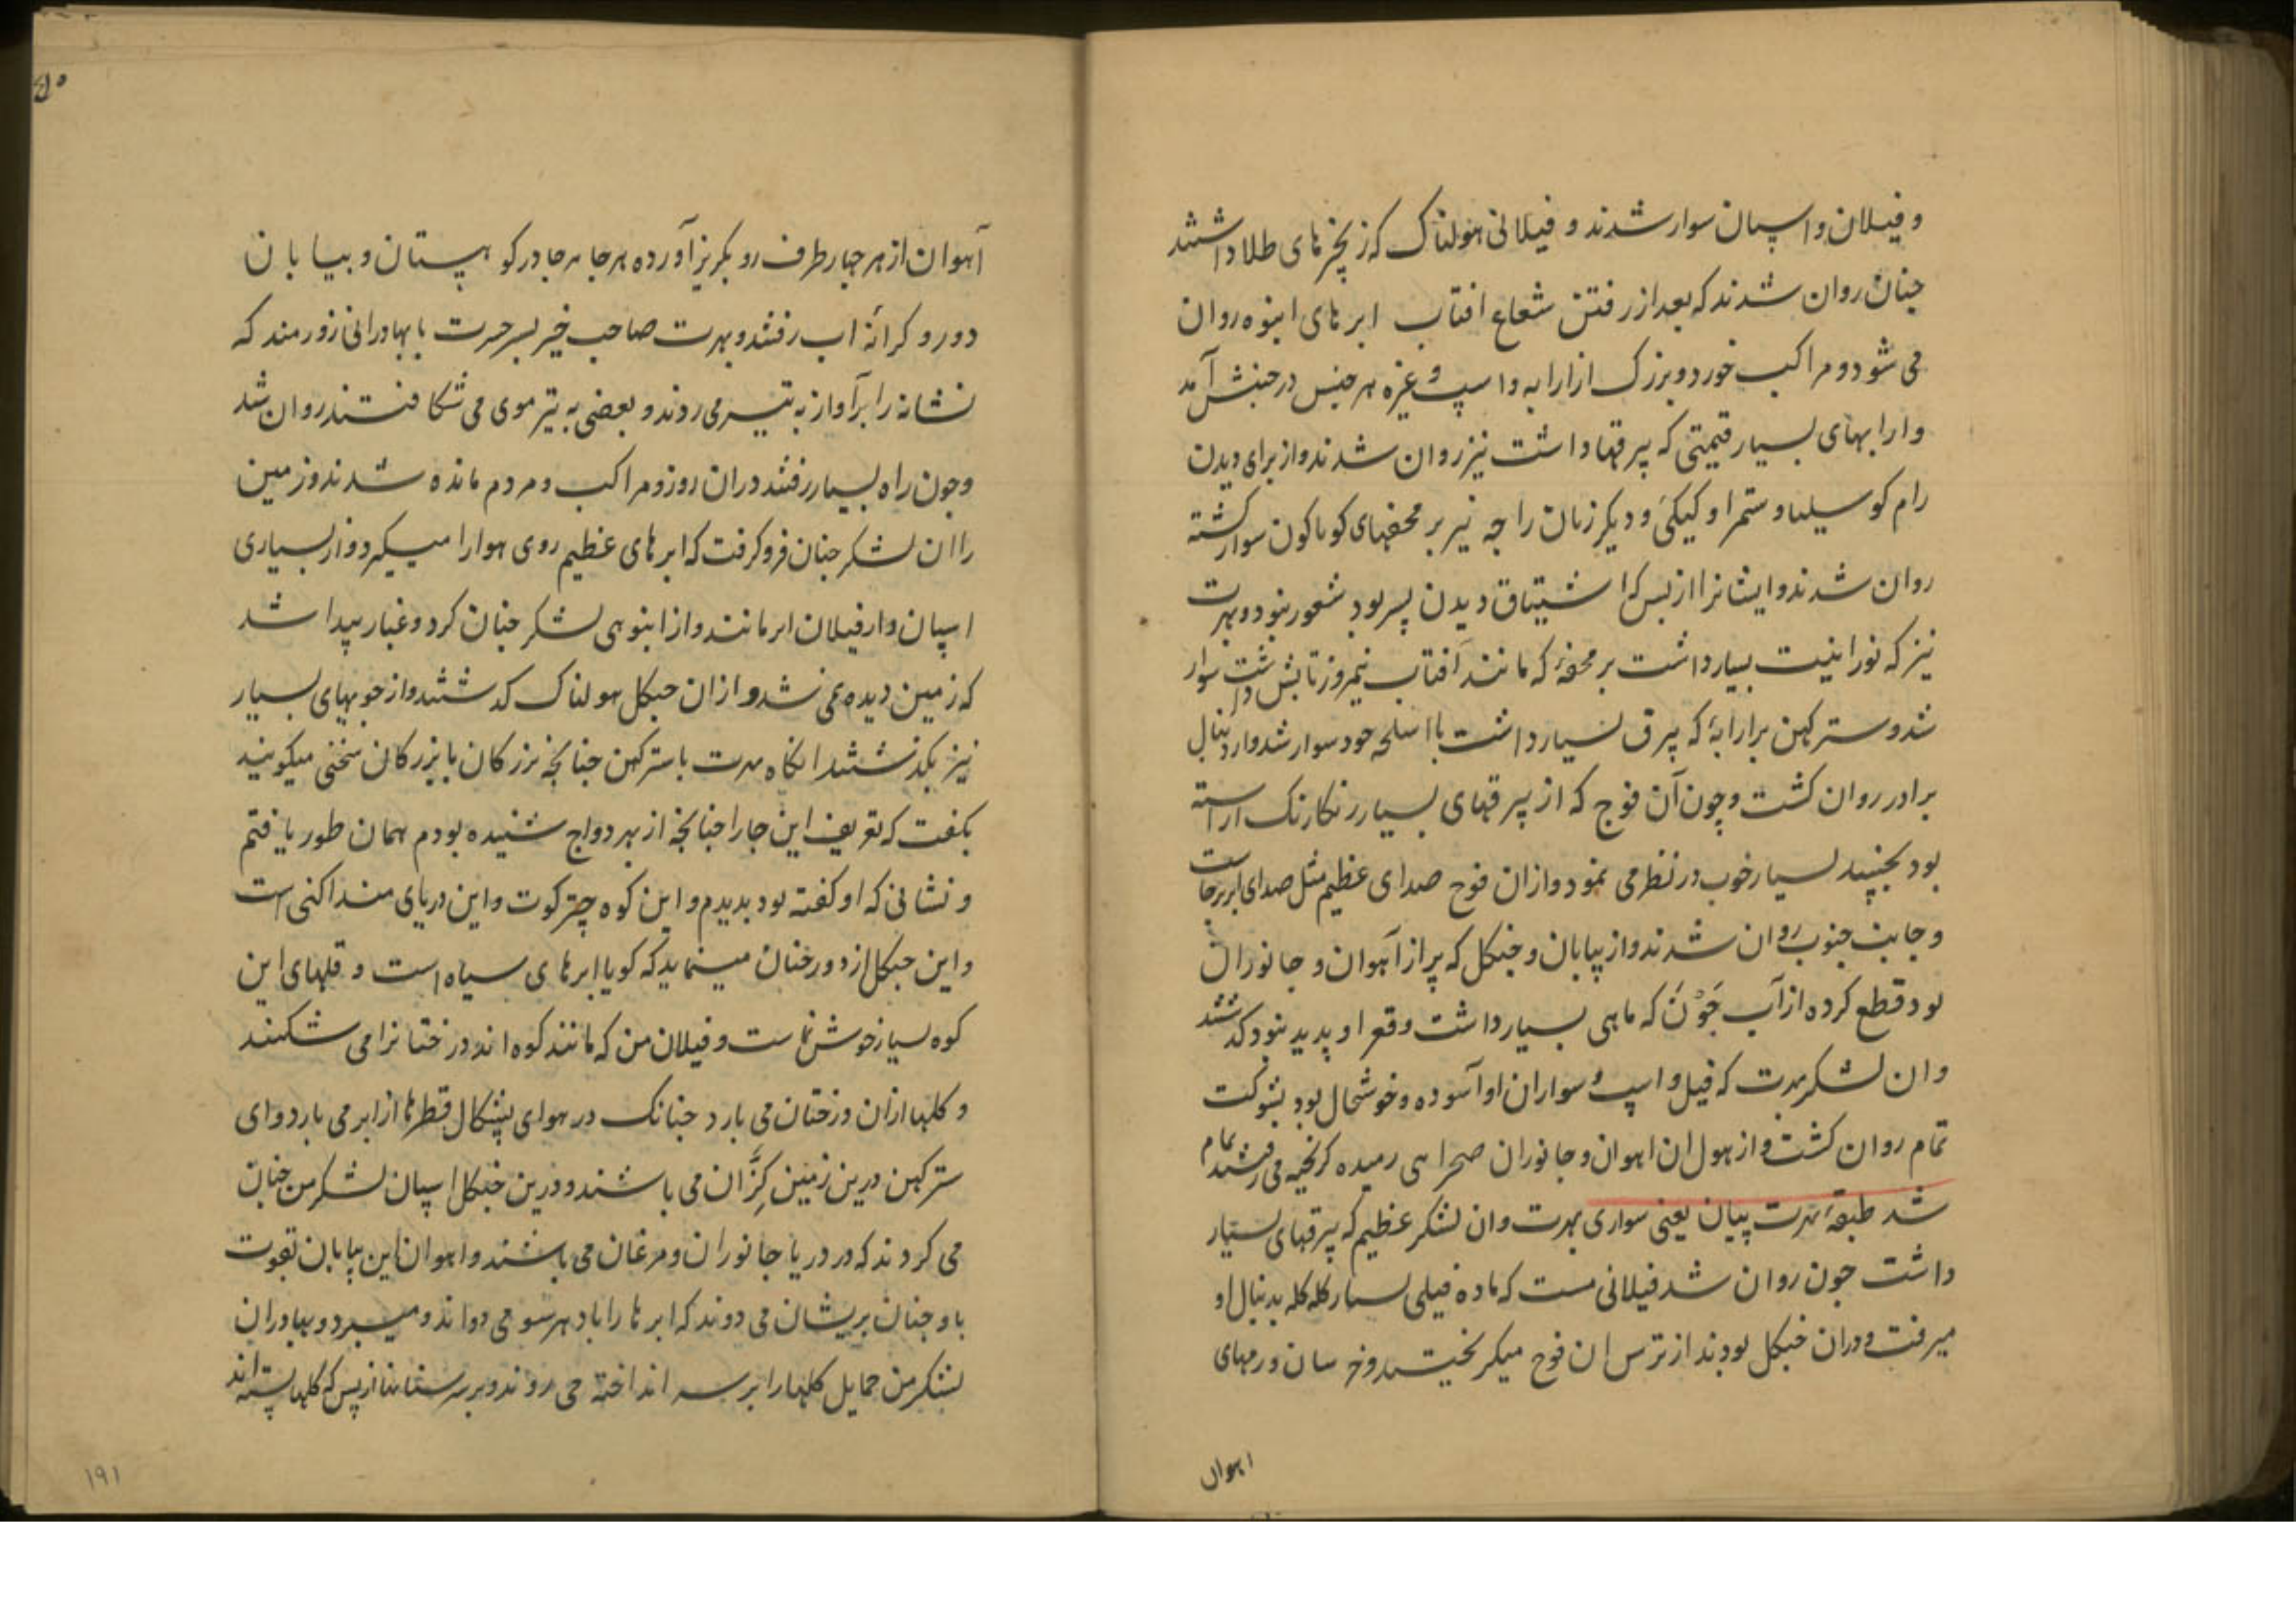 و فیلان و اسپان سوار شدند و فیلانی هولناک که زنجیرهای طلا داشتند
چنان روان شدند که بعد از رفتن شعاع افتاب ابرهای انبوه روان
می شود و مراکب خورد و بزرک از ارابه و اسپ و غیره هر جنس در جنبش آمد
و ارابهای بسیار قیمتی که پیرقها داشت نیز روان شدند و از برای دیدن
رام کوسیلیا و ستمرا و کیکئی و دیکر زنان راجه نیز بر محفهای کوناکون سوار کشته
روان شدند و ایشانرا از بس که اشتیاق دیدن پسر بود شعور نبود و بهرت
نیز که نورانیت بسیار داشت بر محفهٔ که مانند آفتاب نیمروز تابش داشت سوار
شد و سترکهن بر ارابهٔ که پیرق بسیار داشت با اسلحه خود سوار شد و از دنبال
برادر روان کشت و چون آن فوج که از پیرقهای بسیار رنکارنک اراسته
بود بجنبید بسیار خوب در نظر می نمود و از ان فوج صدای عظیم مثل صدای ابر برخاست
و جانب جنوب روان شدند و از بیابان و جنکل که پر از آهوان و جانوران
بود قطع کرده از آب جَوْن که ماهی بسیار داشت و قعر او پدید نبود کذشتند
و ان لشکر بهرت که فیل و اسپ و سواران او آسوده و خوشحال بود بشوکت
تمام روان کشت و از هول ان اهوان و جانوران صحراهی رمیده کریخته می رفتند تمام
شد طبقهٔ بهرت پیان یعنی سواری بهرت و ان لشکر عظیم که پیرقهای بسیار
داشت چون روان شد فیلانی مست که ماده فیلی بسیار کله کله بدنبال او
میرفت و دران جنکل بودند از ترس ان فوج میکریختند و خرسان و رمهای
اهوان
۵۰
آهوان از هر چهار طرف رو بکریز آورده هر جا هر جا در کوهستان و بیابان
دور و کرانهٔ اب رفتند و بهرت صاحب خیر پسر جسرت با بهادرانی زورمند که
نشانه را بر آواز به تیر می زدند و بعضی به تیر موی می شکافتند روان شد
و چون راه بسیار رفتند دران روز و مراکب و مردم مانده شدند و زمین
را ان لشکر چنان فرو کرفت که ابرهای عظیم روی هوا را میکیرد و از بسیاری
اسپان و از فیلان ابر مانند و از انبوهی لشکر چنان کرد و غبار پیدا شد
که زمین دیده نمی شد و از ان جنکل هولناک کذشتند و از جوبهای بسیار
نیز بکذشتند انکاه بهرت با سترکهن چنانچه بزرکان با بزرکان سخنی میکویند
بکفت که تعریف این جا را چنانچه از بهردواج شنیده بودم همان طور یافتم
و نشانی که او کفته بود بدیدم و این کوه چترکوت و این دریای منداکنی است
و این جنکل از دور چنان مینماید که کویا ابرهای سیاه است و قلهای این
کوه بسیار خوش نماست و فیلان من که مانند کوه اند درختانرا می شکنند
و کلها از ان درختان می بارد چنانک در هوای پشکال قطرها از ابر می بارد و ای
سترکهن درین زمین کِنَّران می باشند و درین جنکل اسپان لشکر من چنان
می کردند که در دریا جانوران و مرغان می باشند و اهوان این بیابان بقوت
باد چنان پریشان می دوند که ابرها را باد هر سو می دواند و میبرد و بهادران
لشکر من حمایل کلها را بر سر انداخته می روند و بر سر سنانها از بس که کلها بسته اند
۱۹۱